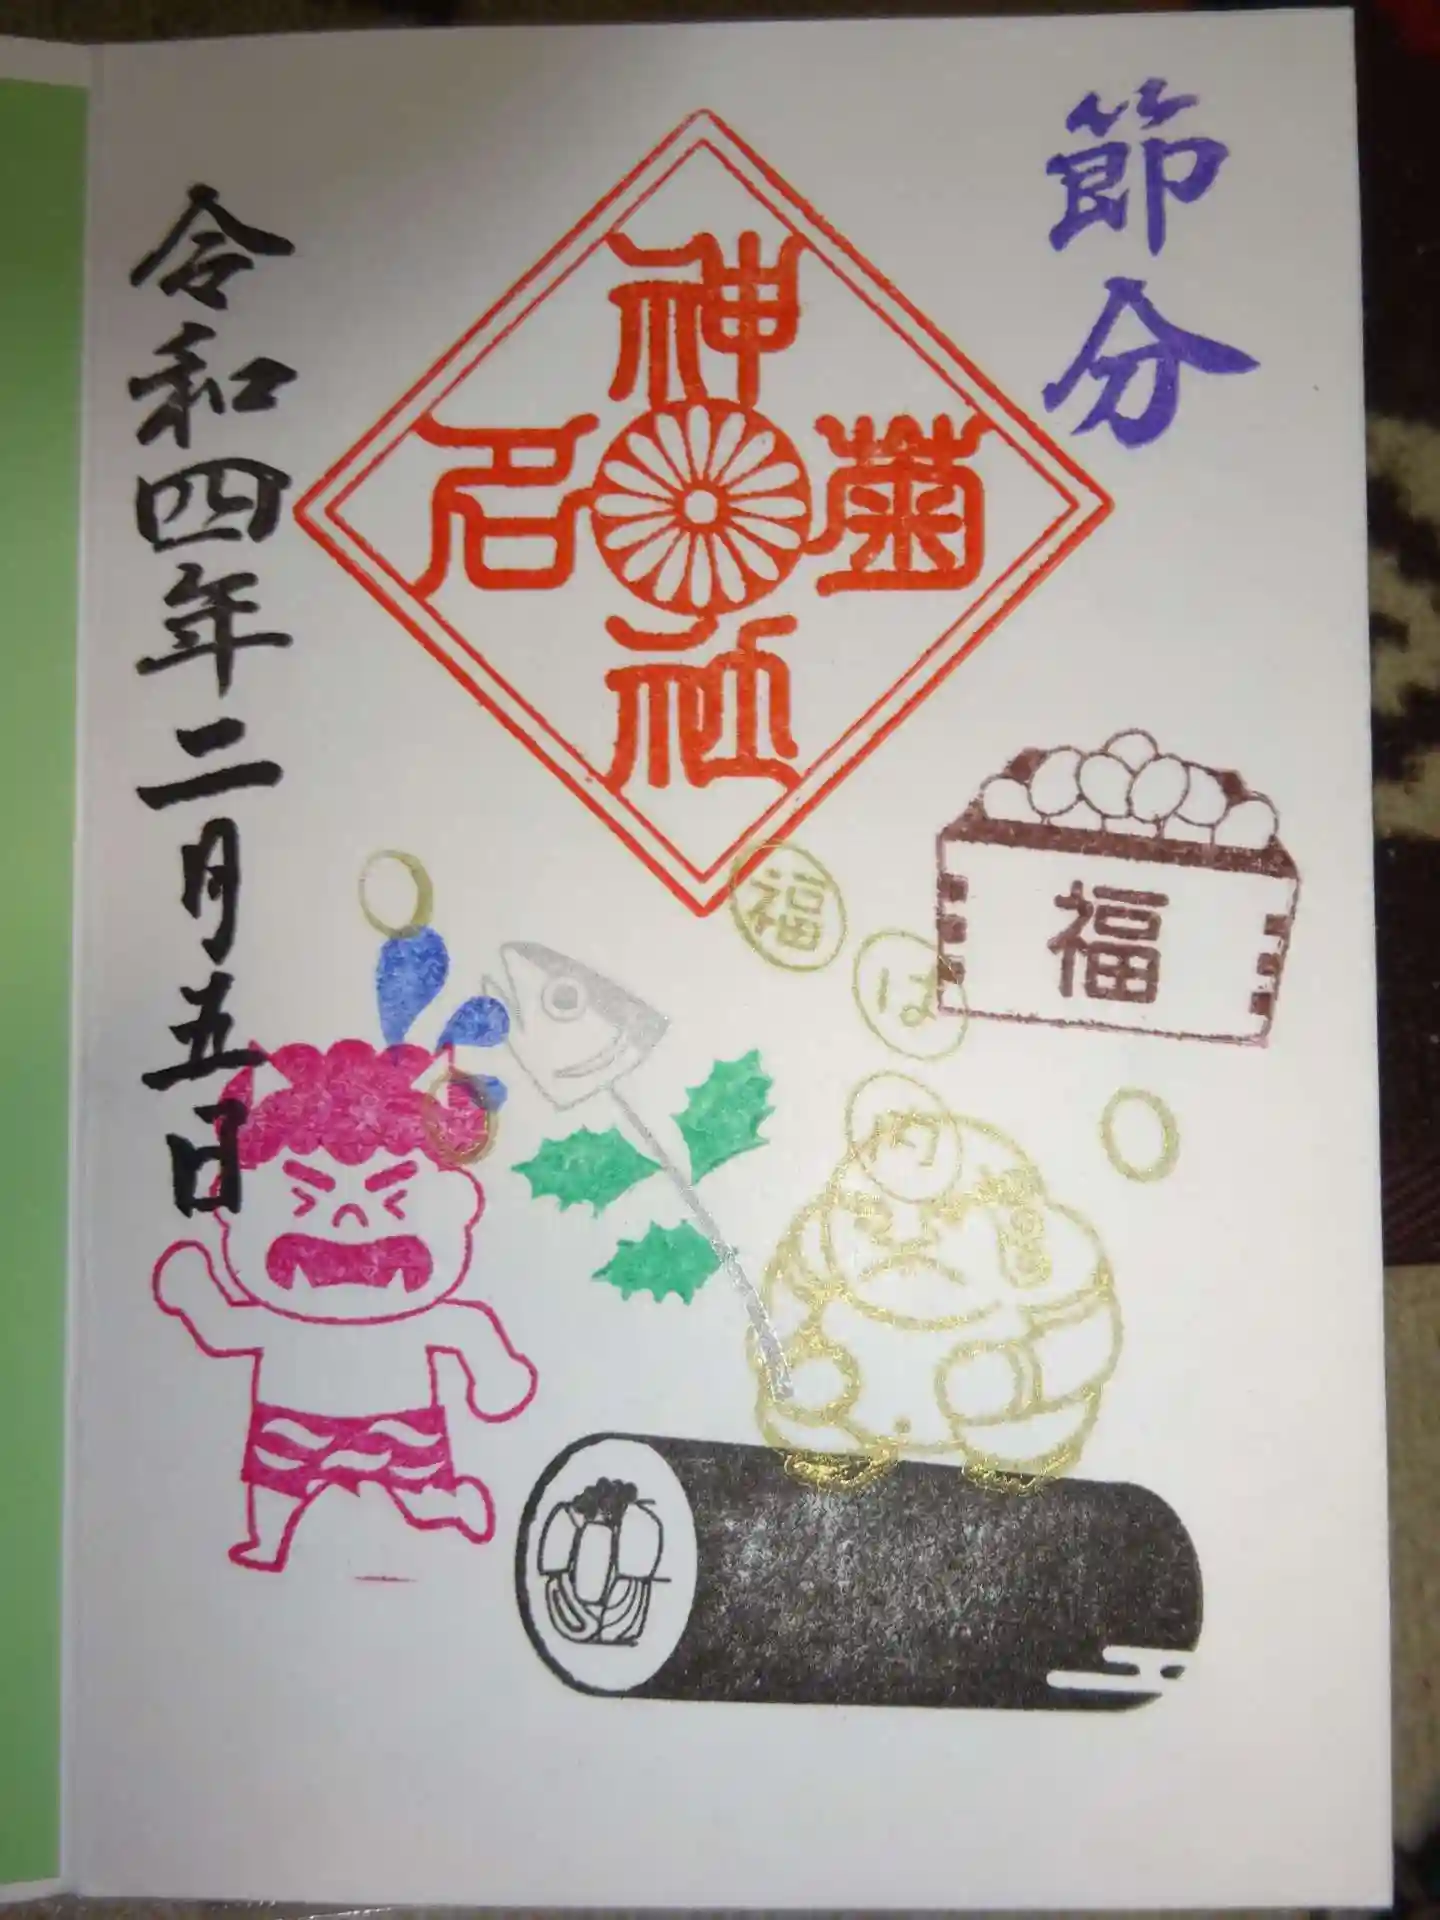 節分
菊名神社
福
福は内
令和四年二月五日